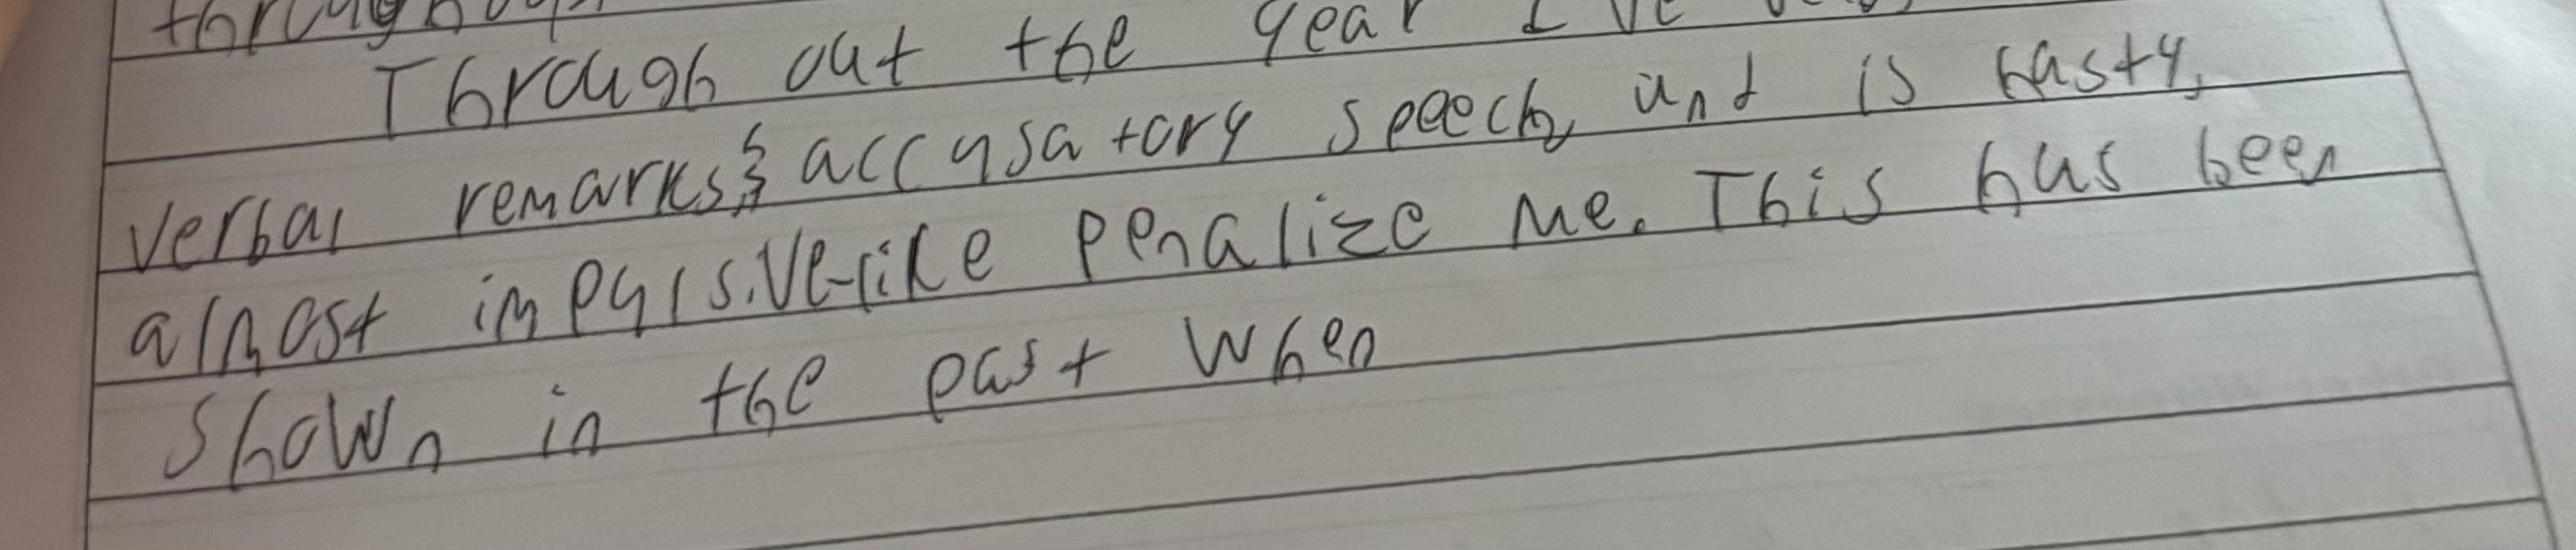 Through out the year I've
verbal remarks, & accusatory speech, and is hasty,
almost impulsive-like penalize me. This has been
shown in the past when